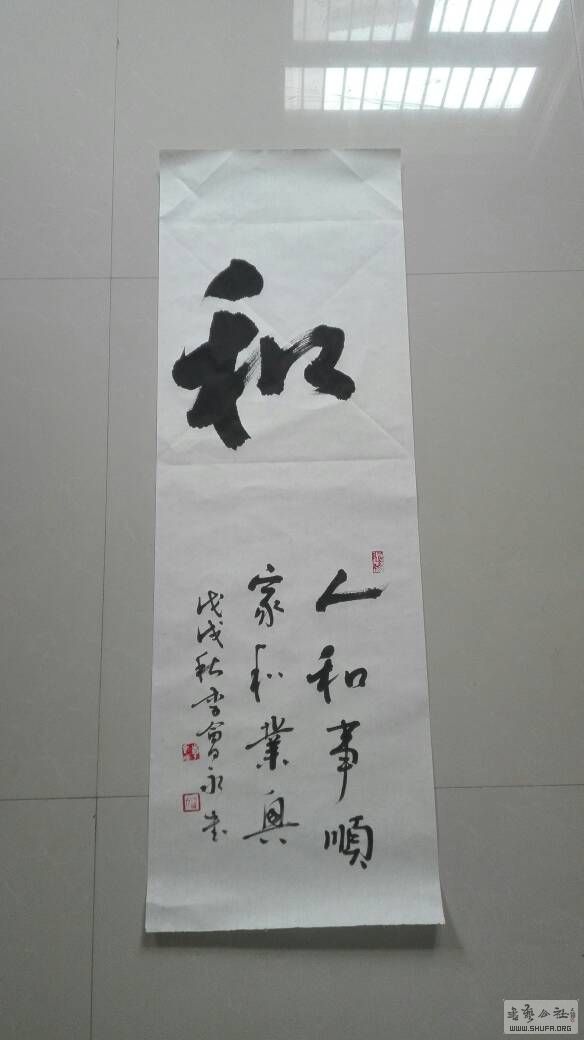 和
人和事順
家和業興
戊戌秋李會永書
书艺公社
WWW.SHUFA.ORG